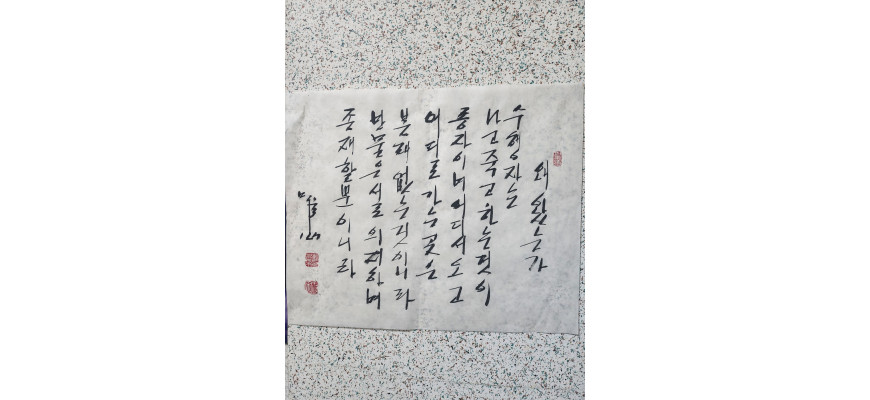 왜
수행자는
나고 죽고 하는 것이
이며 어디서
어디로 가는 곳은
본래 없는 것이니라
만물은 서로 의지하며
존재할뿐이니라